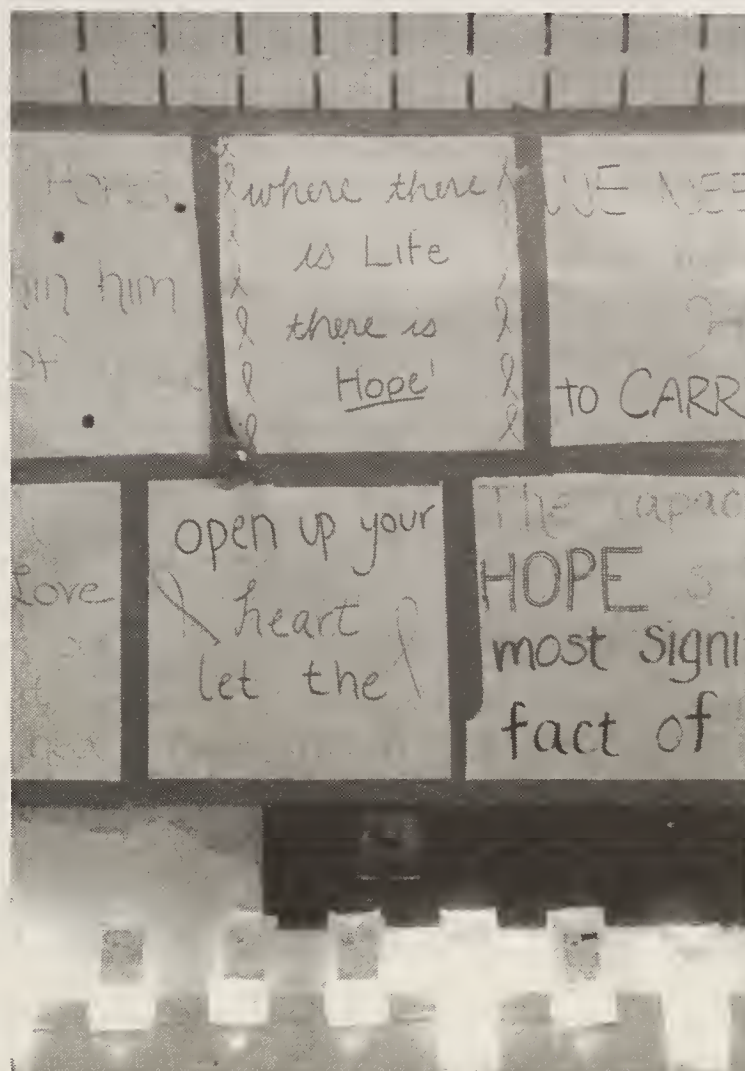 him
where there
is Life
there is
Hope!
WE NEE
to CARR
Love
open up your
heart
let the
The capac
HOPE
most signi
fact of